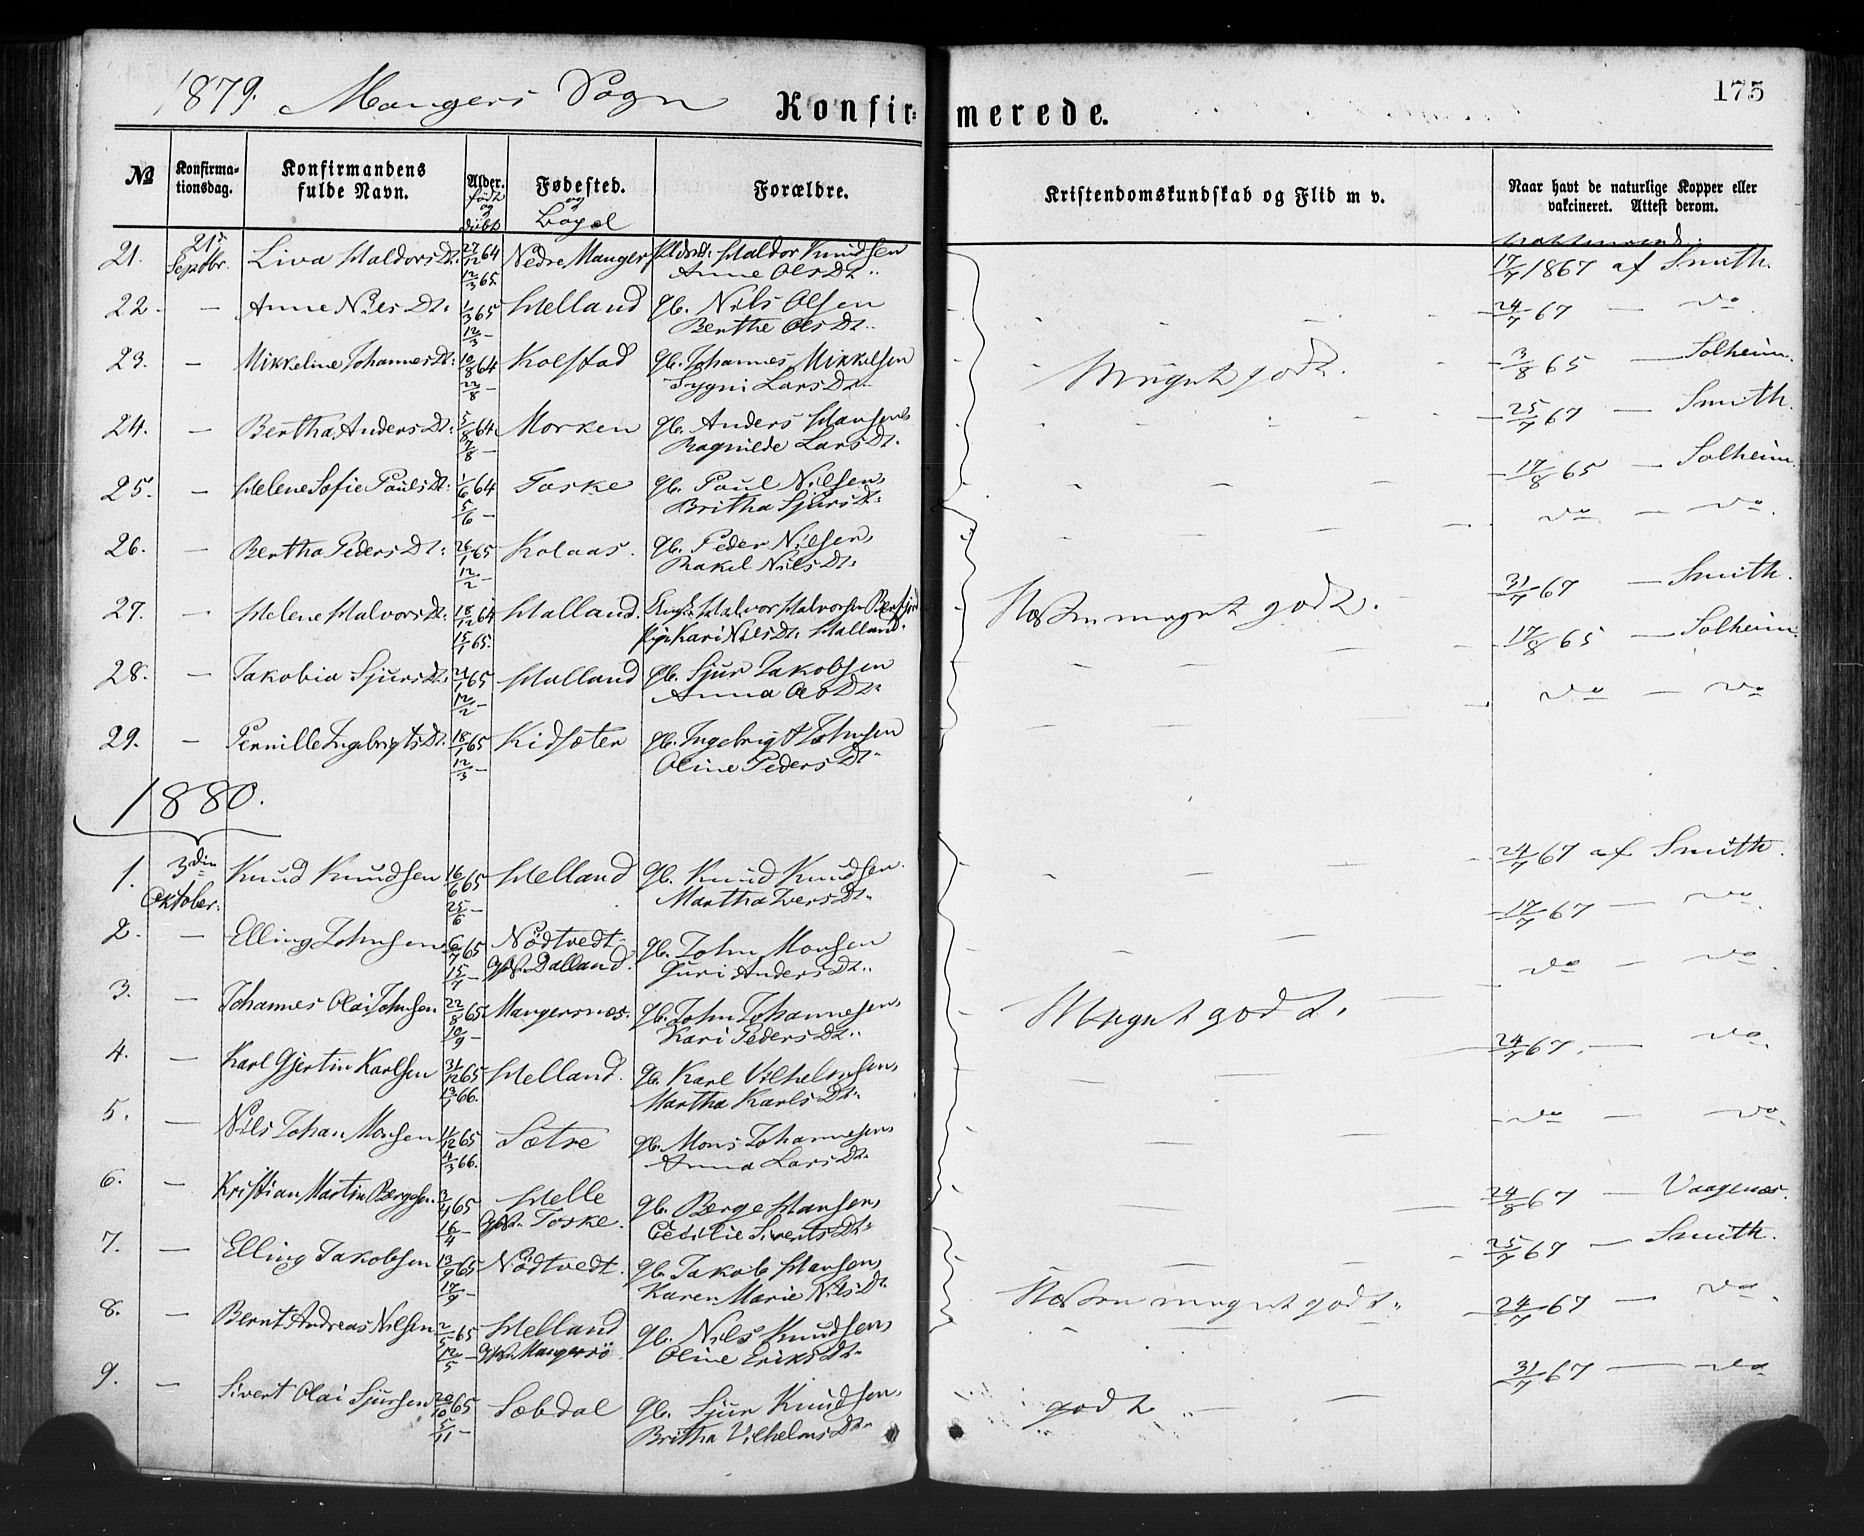 1879. Mangers Sogn
Konfirmerede.
175
№
Konfirmationsdag.
Konfirmandens fulde Navn.
Alder. født og døbt
Fødested. og Bopæl
Forældre.
Kristendomskundskab og Flid m v.
Naar havt de naturlige Kopper eller vakcineret. Attest derom.
21. 21. Septbr. Liva Haldorsdt: 27/12 64 12/3 65. Nedre Manger Haldor Knudsen
Anne Olsdt.. 17/7 1867 af Smith.
22. - Anne Nilsdt: 1/3 65 12/3 - Helland gb. Nils Olsen
Berthe Olsdt.. 24/7 67 - do
23. - Mikkeline Johannesdt: 10/8 64 22/8 - Kolstad gb. Johannes Mikkelsen
Sygni Larsdt. Meget godt. 3/8 65 - Solheim.
24. - Bertha Andersdt: 5/8 64 7/8 - Morken gb. Anders Hansen
Ragnilde Larsdt. 25/7 67 - Smith.
25. - Helene Sofie Paulsdt: 1/6 64 5/6 - Toske gb. Paul Nilsen
Britha Sjursdt: 17/8 65 - Solheim.
26. - Bertha Pedersdt: 26/1 65 12/2 - Kolaas. gb. Peder Nilsen
Rakel Nilsdt: do - do.
27. - Helene Halvorsdt: 18/12 64 15/1 65. Halland. Halvor Halvorsen
Kari Nilsdt: Halland. Næsten meget godt. 31/7 67 - Smith.
28. - Jakobia Sjursdt. 21/1 65 12/2 - Halland gb. Sjur Jakobsen
Anna Olsdt: 17/8 65 - Solheim.
29. - Pernille Ingebrigtsdt. 18/1 65 12/3 - Kidsæter gb. Ingebrigt Johnsen
Oline Pedersdt. do - do
1880.
1. 3die Oktober. Knud Knudsen 16/6 65 25/6 - Helland gb. Knud Knudsen
Martha Iversdt. 24/7 67 af Smith.
2. - Elling Johnsen 6/7 65 15/7 - Nødtvedt. Dalland. gb. John Monsen
Guri Andersdt.. 17/7 67 - do.
3. - Johannes Olai Johnsen 22/8 65 10/9 - Mangersnæs. gb. John Johannesen
Kari Pedersdt.. Meget godt. do - do.
4. - Karl Gjertin Karlsen 31/12 65 13/1 66. Helland. gb. Karl Vilhelmsen
Martha Karlsdt. 24/7 67. - do.
5. - Nils Johan Monsen 11/12 65 4/3 66. Sætre gb. Mons Johannesen
Anna Larsdt. do - do.
6. - Kristian Martin Bergesen 3/4 65 16/4 - Helle Toske. gb. Berge Hansen
Cecilie Sivertsdt: 24/8 67 - Vaagenæs.
7. - Elling Jakobsen 13/9 65 17/9 - Nødtvedt. gb. Jakob Hansen
Karen Marie Nilsdt. 25/7 67 - Smith.
8. - Bernt Andreas Nilsen 2/5 65 12/5 - Helland Mangersø gb. Nils Knudsen
Oline Eriksdt. Næsten meget godt.. 24/7 67 - do.
9. - Sivert Olai Sjursen 20/10 65 5/11 - Sæbdal gb. Sjur Knudsen
Britha Vilhelmsdt. godt 31/7 67 - do